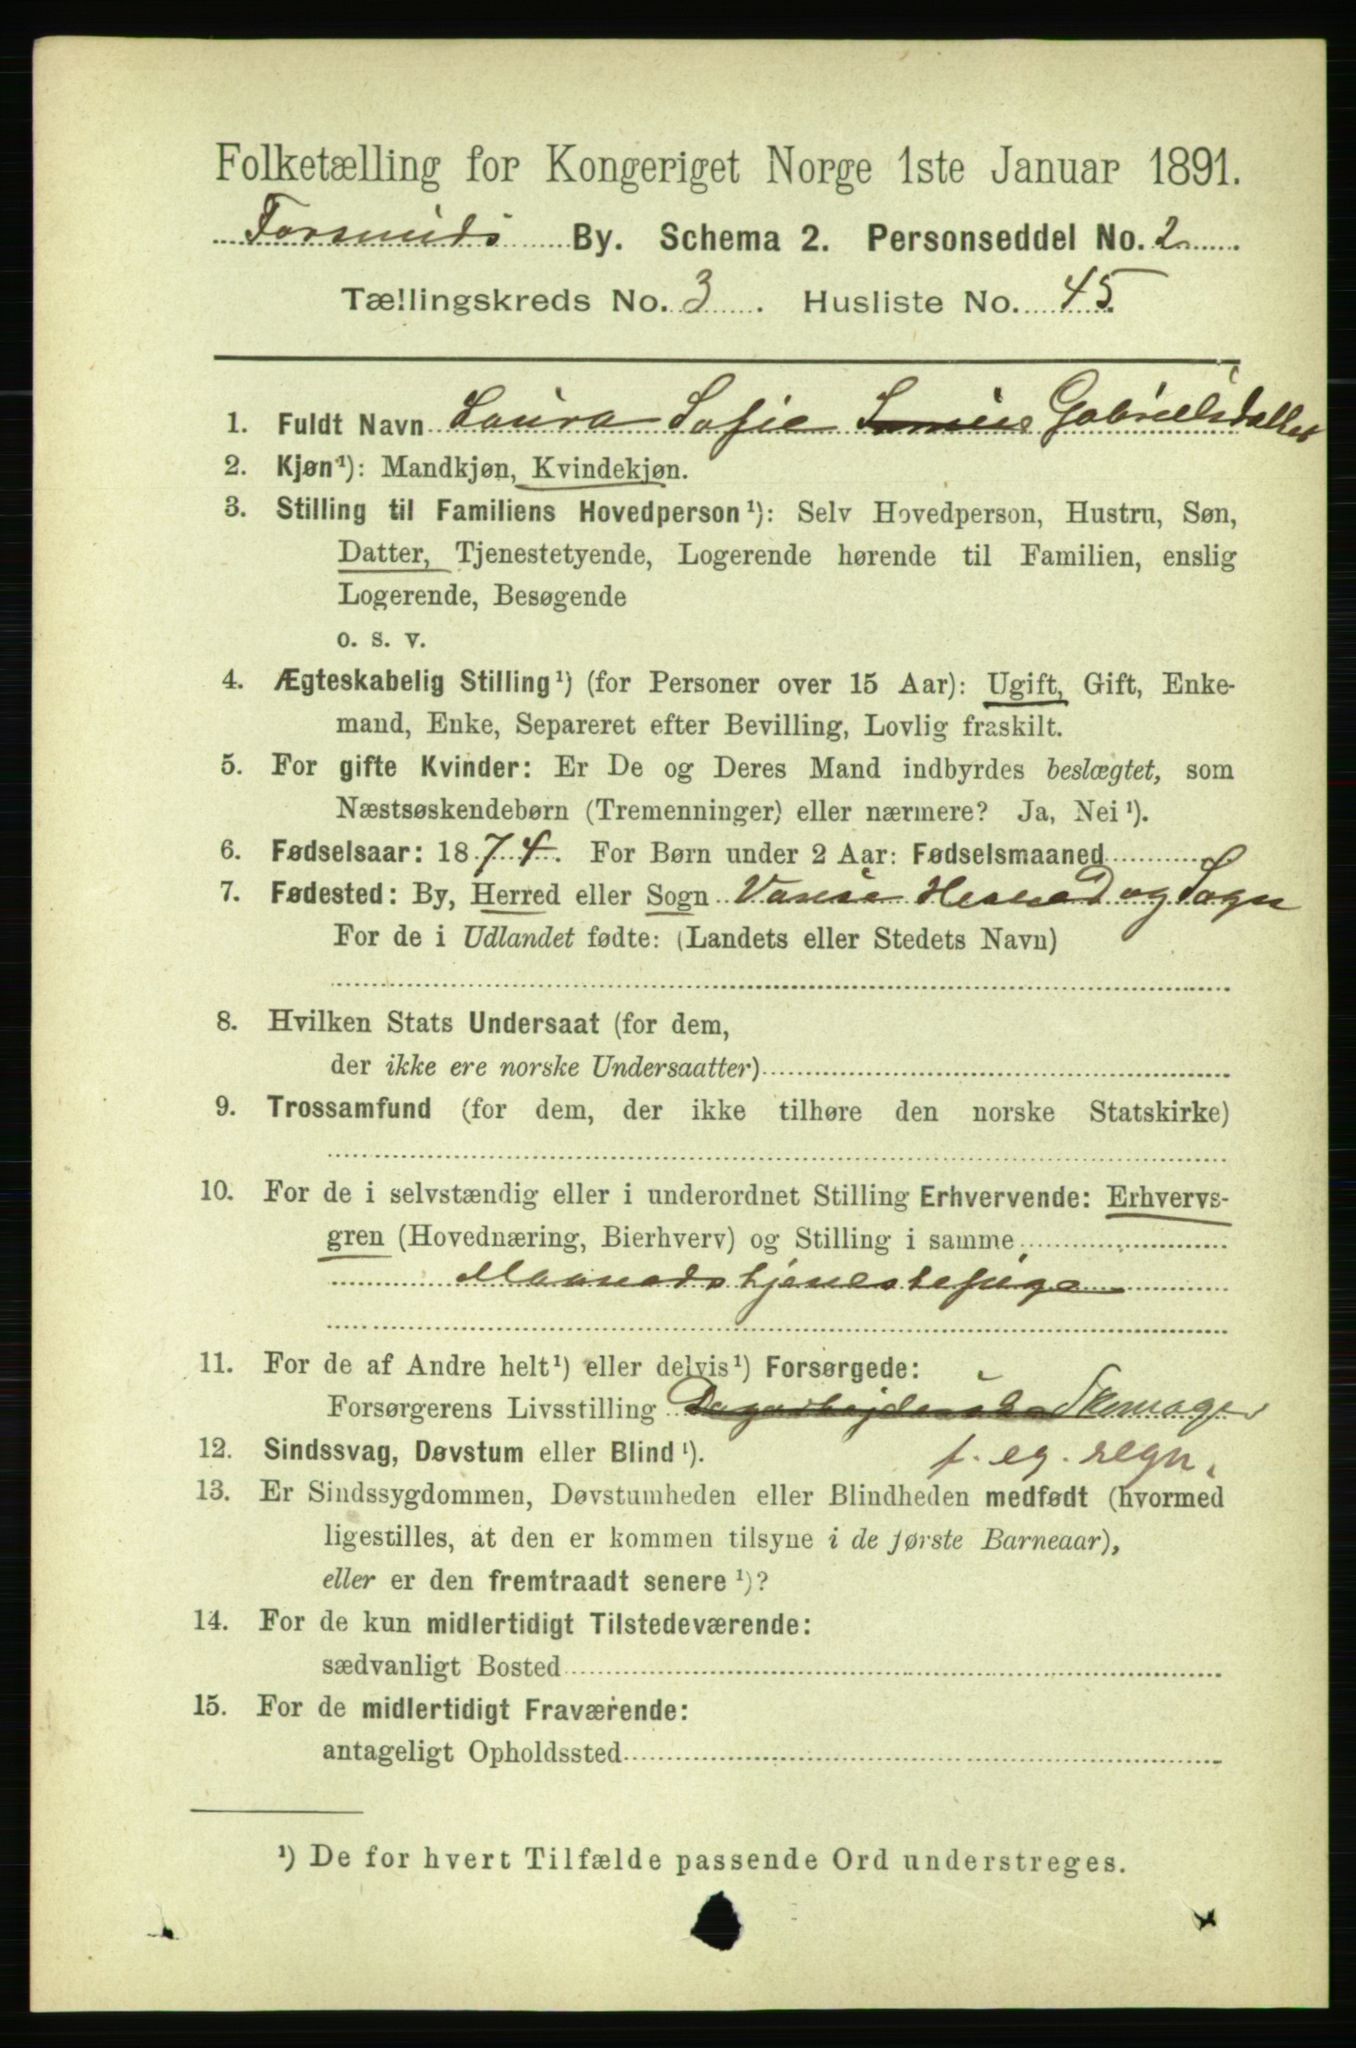 Folketælling for Kongeriget Norge 1ste Januar 1891.
Farsunds By. Schema 2. Personseddel No. 2
Tællingskreds No. 3. Husliste No. 45.
1. Fuldt Navn Laura Sofie Gabrielsdatter
2. Kjøn¹): Mandkjøn, Kvindekjøn.
3. Stilling til Familiens Hovedperson¹): Selv Hovedperson, Hustru, Søn,
Datter, Tjenestetyende, Logerende hørende til Familien, enslig
Logerende, Besøgende
o. s. v.
4. Ægteskabelig Stilling¹) (for Personer over 15 Aar): Ugift, Gift, Enke-
mand, Enke, Separeret efter Bevilling, Lovlig fraskilt.
5. For gifte Kvinder: Er De og Deres Mand indbyrdes beslægtet, som
Næstsøskendebørn (Tremenninger) eller nærmere? Ja, Nei¹).
6. Fødselsaar: 1874. For Børn under 2 Aar: Fødselsmaaned
7. Fødested: By, Herred eller Sogn Vanse Herred og Sogn
For de i Udlandet fødte: (Landets eller Stedets Navn)
8. Hvilken Stats Undersaat (for dem,
der ikke ere norske Undersaatter)
9. Trossamfund (for dem, der ikke tilhøre den norske Statskirke)
10. For de i selvstændig eller i underordnet Stilling Erhvervende: Erhvervs-
gren (Hovednæring, Bierhverv) og Stilling i samme
Maanedstjenestepige
11. For de af Andre helt¹) eller delvis¹) Forsørgede:
Forsørgerens Livsstilling Skomager
f. eg. regn.
12. Sindssvag, Døvstum eller Blind¹).
13. Er Sindssygdommen, Døvstumheden eller Blindheden medfødt (hvormed
ligestilles, at den er kommen tilsyne i de første Barneaar),
eller er den fremtraadt senere¹)?
14. For de kun midlertidigt Tilstedeværende:
sædvanligt Bosted
15. For de midlertidigt Fraværende:
antageligt Opholdssted
¹) De for hvert Tilfælde passende Ord understreges.